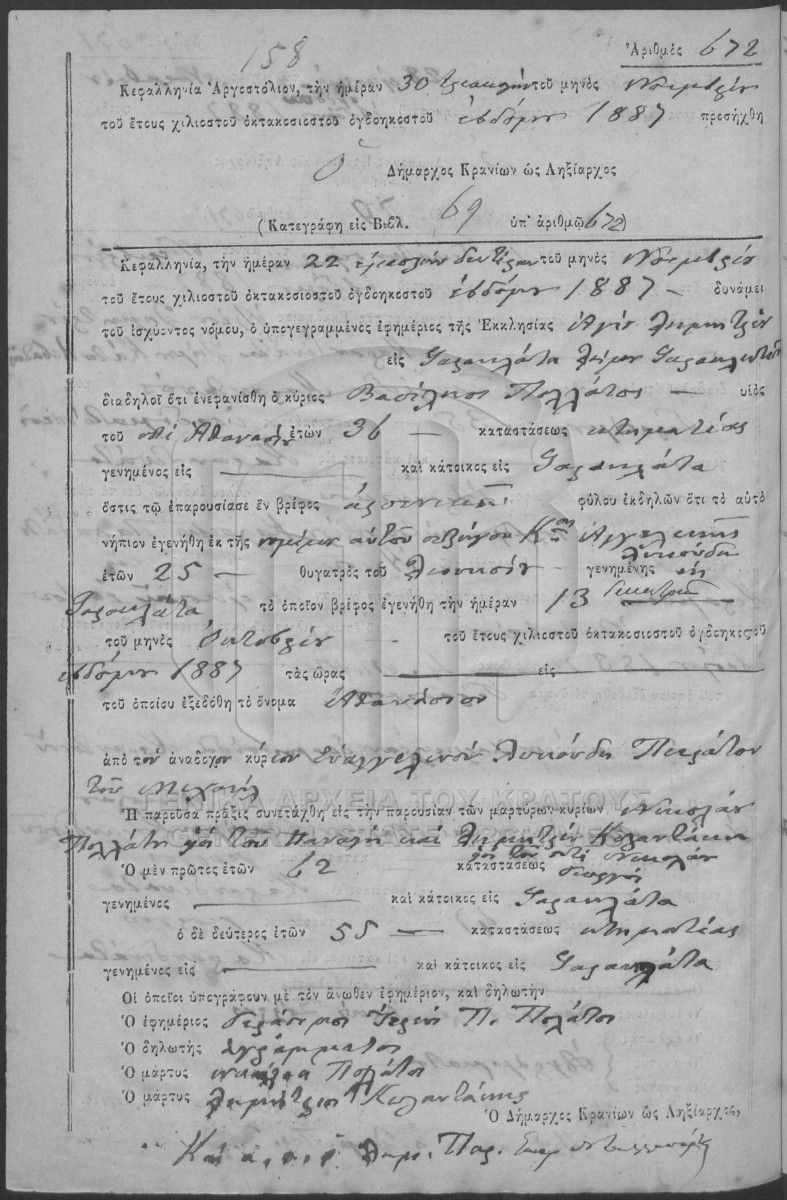 158
Ἀριθμὸς 672
Κεφαλληνία Ἀργοστόλιον, τὴν ἡμέραν 30 τοῦ μηνὸς Νοεμβρίου
τοῦ ἔτους χιλιοστοῦ ὀκτακοσιοστοῦ ὀγδοηκοστοῦ ἑβδόμου 1887 προσήχθη
Ὁ Δήμαρχος Κρανίων ὡς Ληξίαρχος
(Κατεγράφη εἰς Βιβλ. 69 ὑπ' ἀριθμῷ 672)
Κεφαλληνία, τὴν ἡμέραν 22 εἰκοστὴν δευτέραν τοῦ μηνὸς Νοεμβρίου
τοῦ ἔτους χιλιοστοῦ ὀκτακοσιοστοῦ ὀγδοηκοστοῦ ἑβδόμου 1887 — δυνάμει
τοῦ ἰσχύοντος νόμου, ὁ ὑπογεγραμμένος ἐφημέριος τῆς Ἐκκλησίας Ἁγίου Δημητρίου
εἰς Φαρακλάτα
διαδηλοῖ ὅτι ἐνεφανίσθη ὁ κύριος Βασίλειος Πολλάτος — υἱὸς
τοῦ ποτὲ Ἀθανασίου ἐτῶν 36 — καταστάσεως κτηματίας
γενημένος εἰς — καὶ κάτοικος εἰς Φαρακλάτα
ὅστις τῷ ἐπαρουσίασε ἓν βρέφος ἀρσενικοῦ φύλου ἐκδηλῶν ὅτι τὸ αὐτὸ
νήπιον ἐγενήθη ἐκ τῆς νομίμου αὐτοῦ συζύγου Κας Ἀγγελικῆς
ἐτῶν 25 — θυγατρὸς τοῦ Διονυσίου Λυκούδη γενημένης εἰς
Φαρακλάτα τὸ ὁποῖον βρέφος ἐγενήθη τὴν ἡμέραν 13
τοῦ μηνὸς Ὀκτωβρίου τοῦ ἔτους χιλιοστοῦ ὀκτακοσιοστοῦ ὀγδοηκοστοῦ
ἑβδόμου 1887 τὰς ὥρας — εἰς —
τοῦ ὁποίου ἐξεδόθη τὸ ὄνομα Ἀθανάσιον
ἀπὸ τὸν ἀνάδοχον κύριον Εὐαγγελινὸν Λυκούδη
τοῦ Μιχαήλ
ΓΕΝΙΚΑ ΑΡΧΕΙΑ ΤΟΥ ΚΡΑΤΟΥΣ
GENERAL STATE ARCHIVES
Ἡ παροῦσα πρᾶξις συνετάχθη εἰς τὴν παρουσίαν τῶν μαρτύρων κυρίων Νικολάου
Πολλάτου τοῦ Παναγῆ καὶ Δημητρίου Κολαντάκη
τοῦ ποτὲ Νικολάου
Ὁ μὲν πρῶτος ἐτῶν 62 καταστάσεως γεωργὸς
γενημένος — καὶ κάτοικος εἰς Φαρακλάτα
ὁ δὲ δεύτερος ἐτῶν 55 — καταστάσεως κτηματίας
γενημένος εἰς — καὶ κάτοικος εἰς Φαρακλάτα
Οἱ ὁποῖοι ὑπογράφουν μὲ τὸν ἄνωθεν ἐφημέριον, καὶ δηλωτὴν
Ὁ ἐφημέριος Γεράσιμος Ἱερεὺς Π. Πολάτος
Ὁ δηλωτὴς ἀγράμματος
Ὁ μάρτυς νικόλαος Πολάτος
Ὁ μάρτυς Δημήτριος Κολαντάκης
Ὁ Δήμαρχος Κρανίων ὡς Ληξίαρχος,